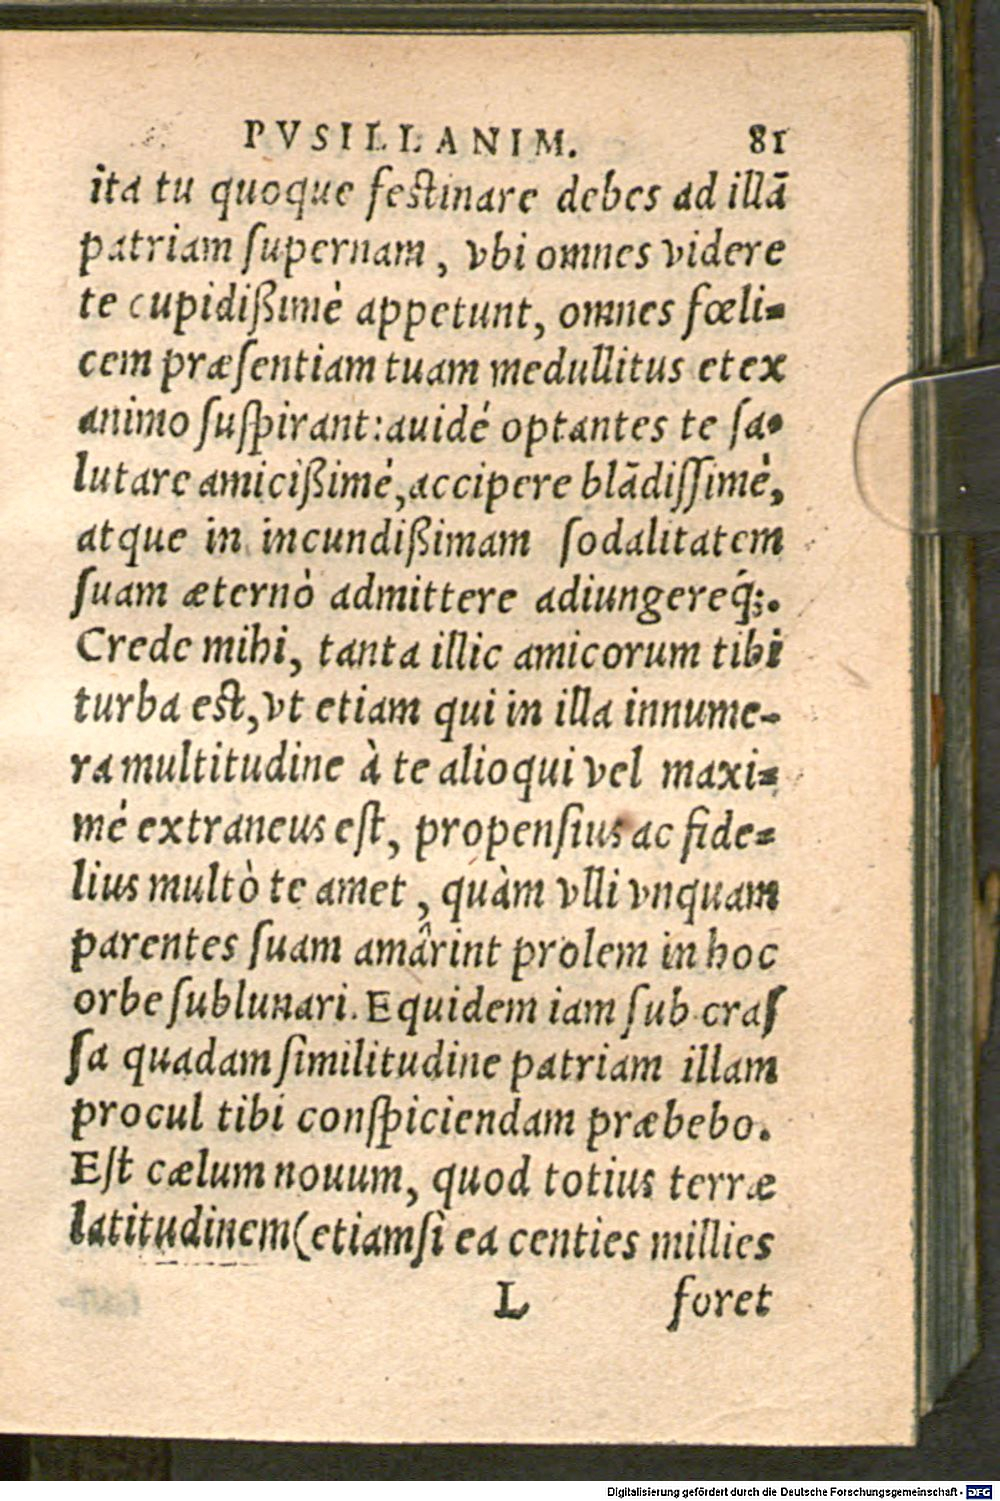 PVSILLANIM. 81
ita tu quoque feſtinare debes ad illā
patriam ſupernam, vbi omnes videre
te cupidißimè appetunt, omnes fœli-
cem præſentiam tuam medullitus et ex
animo ſuſpirant: auidé optantes te ſa-
lutare amicißimé, accipere blādiſſimè,
atque in incundißimam ſodalitatem
ſuam æternò admittere adiungereq́;.
Crede mihi, tanta illic amicorum tibi
turba eſt, vt etiam qui in illa innume-
ra multitudine à te alioqui vel maxi-
mé extraneus eſt, propenſius ac fide-
lius multò te amet, quàm vlli vnquam
parentes ſuam amârint prolem in hoc
orbe ſublunari. Equidem iam ſub craſ
ſa quadam ſimilitudine patriam illam
procul tibi conſpiciendam præbebo.
Eſt cælum nouum, quod totius terræ
latitudinem (etiamſi ea centies millies
L foret
Digitalisierung gefördert durch die Deutsche Forschungsgemeinschaft - DFG